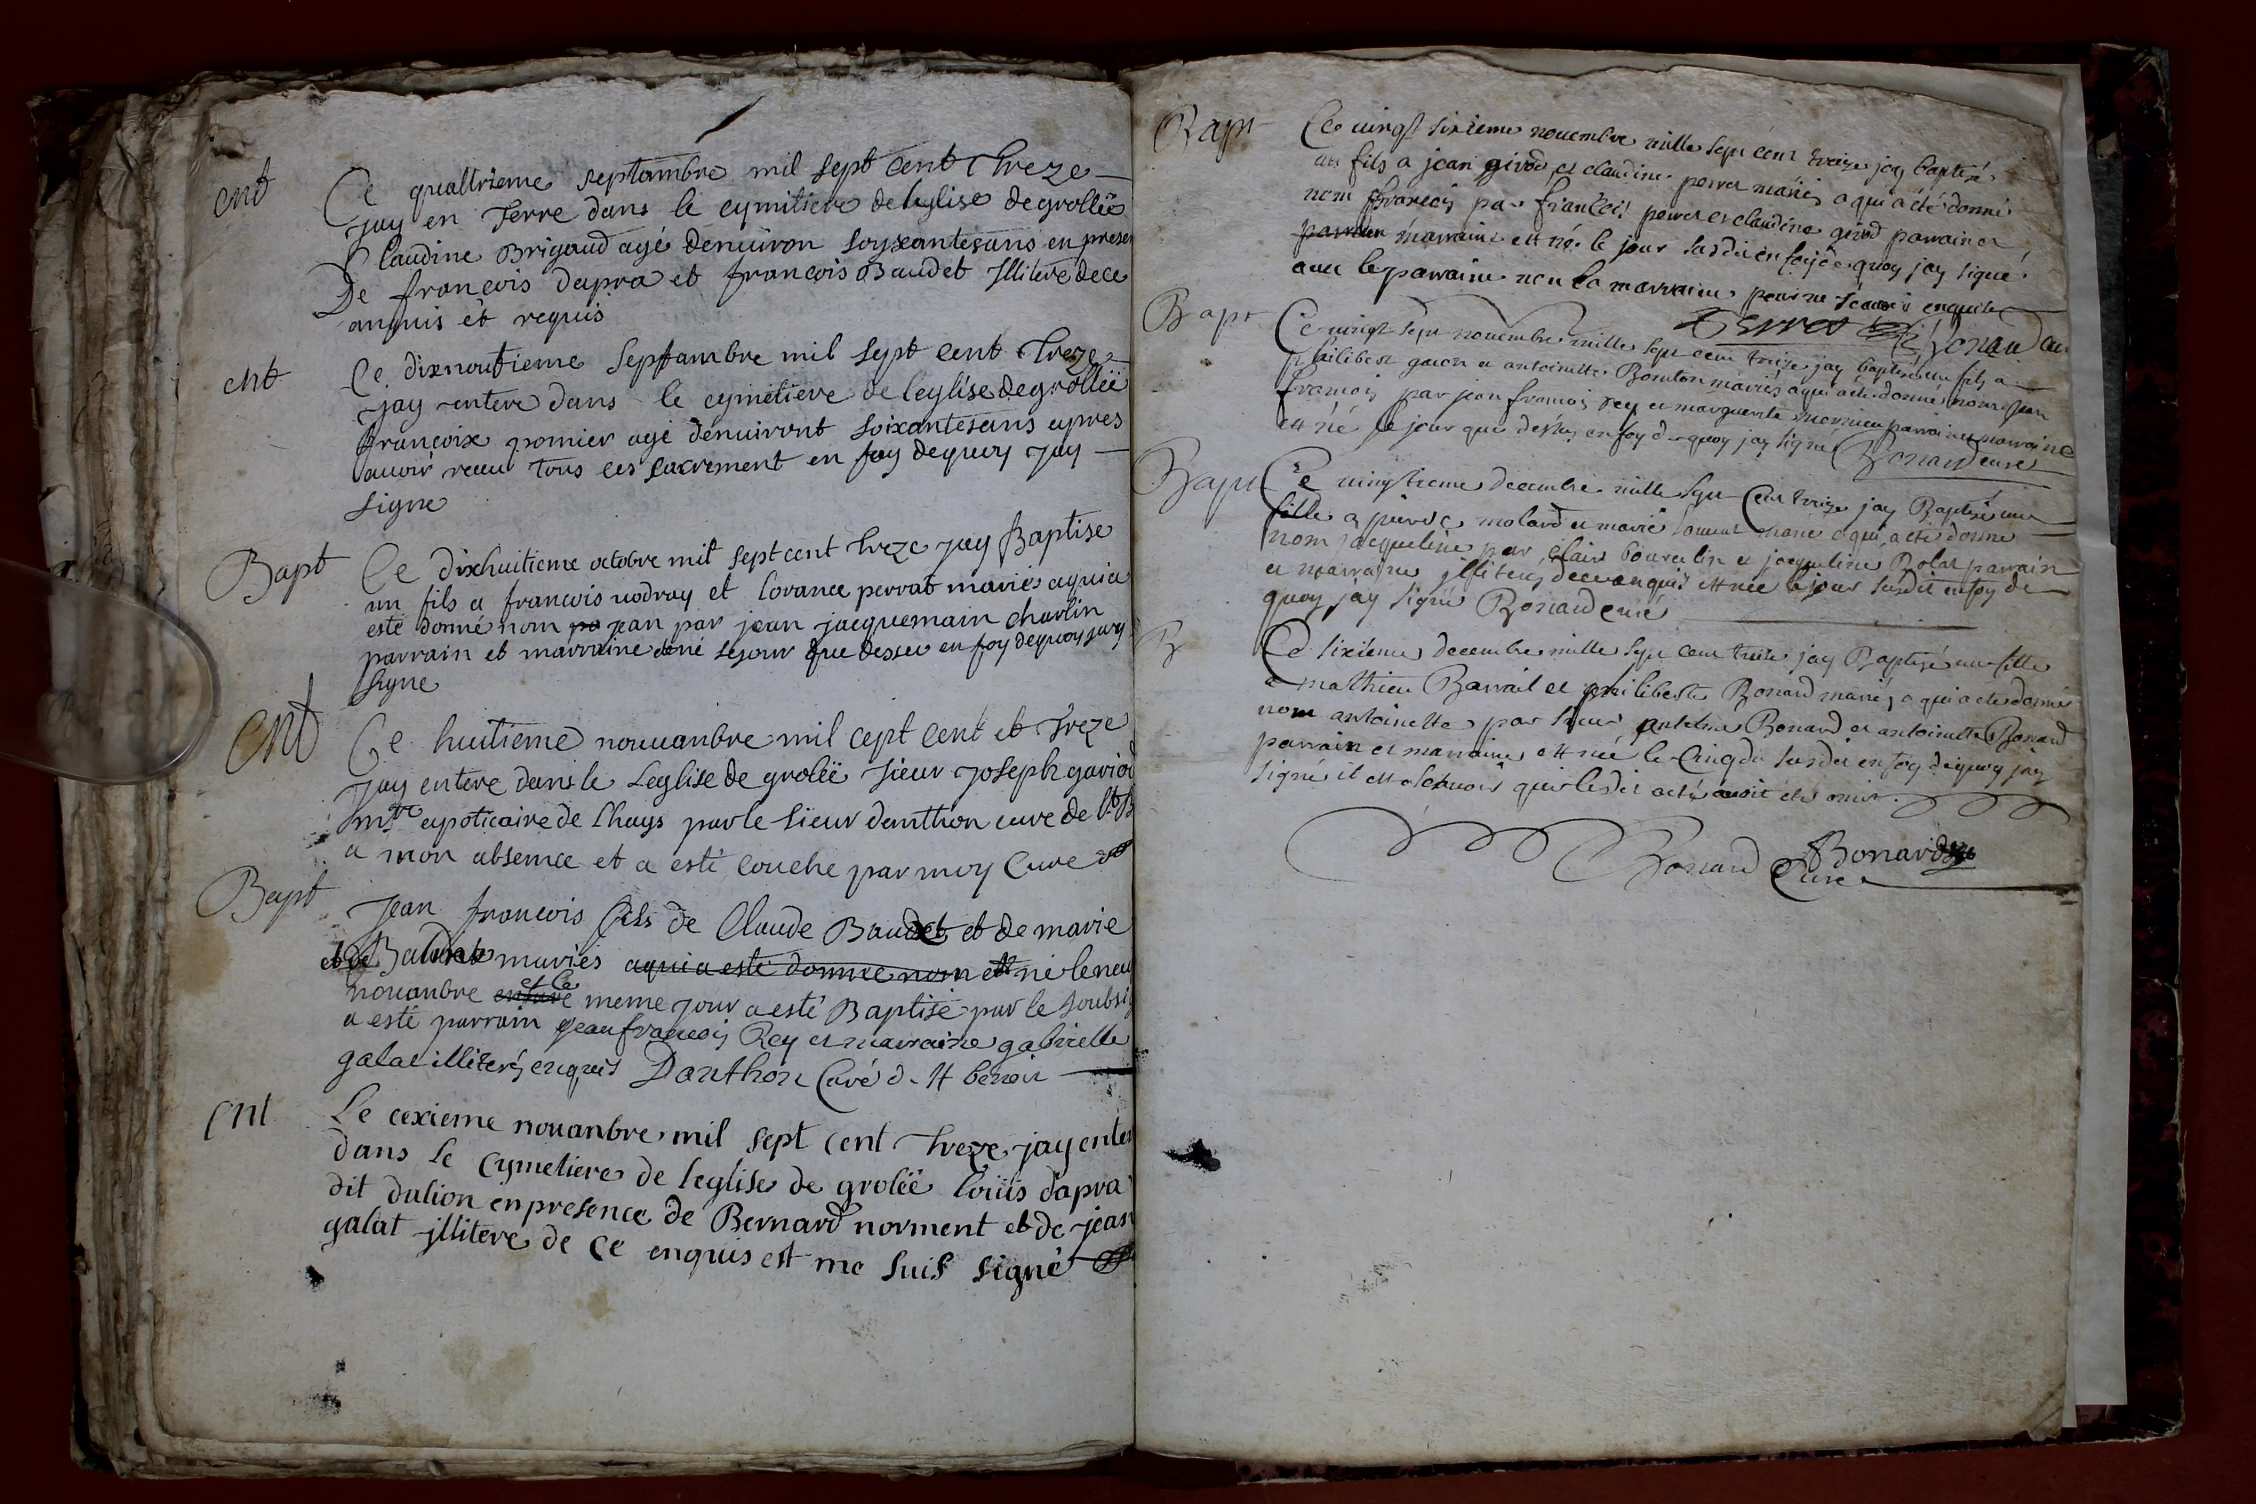 ent
Ce quattrieme septambre mil sept cent treze
jay en terre dans le cymitiere de leglise de grolleé
Claudine Brigaud agé denuiron soyxantesans en presen
De francois dapra et francois Baudet Illitere dece
anquis et requis
ent
Ce dixnoufieme septambre mil sept cent treze
jay entere dans le cymetiere de leglise de grolleé
francoix pomier agé denuiront soixantesans apres
auoir receu tous ces sacrement en foy dequoy jay
signe
Bapt
Ce dixhuitieme octobre mil sept cent treze jay Baptise
un fils a francois uodray et lorance perrat mariés aquia
esté donné nom jean par jean jacquemain charlin
parrain et marraine et né le jour que dessu en foy dequoy jay
signe
Ent
Ce huitieme nouuanbre mil cept cent et treze
jay entere dans le Leglise de grolëe sieur joseph gariod
mre apoticaire de lhuys par le sieur danthon cure de st B
a mon absence et a esté couche par moy Cure
Bapt
Jean francois fils de Claude Baudet et de marie
Baudet mariés aquia esté donnee nom et né le neu
nouanbre et le meme jour a esté Baptisé par le soubsig
a esté parrain jean francois Rey et marraine gabrielle
galat illiterés enquis Danthon Curé de st benoit
Ent
Le cexieme nouanbre mil sept cent treze jay enter
dans le Cymetiere de leglise de groléé loüis dapra
dit dulion en presence de Bernard norment et de jean
galat jllitere de ce enquis est me suis signé
Bapt
Ce uingt sixieme nouembre mille sept cent treize jay baptisé
un fils a jean girod et claudine perret mariés a qui a été donné
nom francois par francois perret et claudine girod parrain et
marraine est né le jour susdit en foy de quoy jay signé
auec le parrain non la marraine pour ne scauoir enquise
Perret Bonard cur
Bapt
Ce uingt sept nouembre mille sept cent treize jay baptisé un fils a
philibert et antoinette mariés a qui a été donné nom jean
francois par jean francois rey et marguerite parrain et marraine
est né le jour que dessus en foy de quoy jay signé Bonard curé
Bapt
Ce decembre mille sept Cent treize jay Baptisé une
fille a pierre molard et marie mariés a qui a été donné
nom jacqueline par clair et jacqueline Rolat parrain
et marraine jlliterés dece enquis et née le jour susdit en foy de
quoy jay signé Bonard curé
B
Ce sixieme decembre mille sept cent treize jay Baptisé une fille
a mathieu Barrail et philiberte Bonard mariés a qui a été donné
nom antoinette par sieur antelme Bonard et antoinette Bonard
parrain et marraine est née le Cinq du susdit en foy dequoy jay
signé il est a scauoir que ledit acte auoit été omis
Bonard Curé Bonard